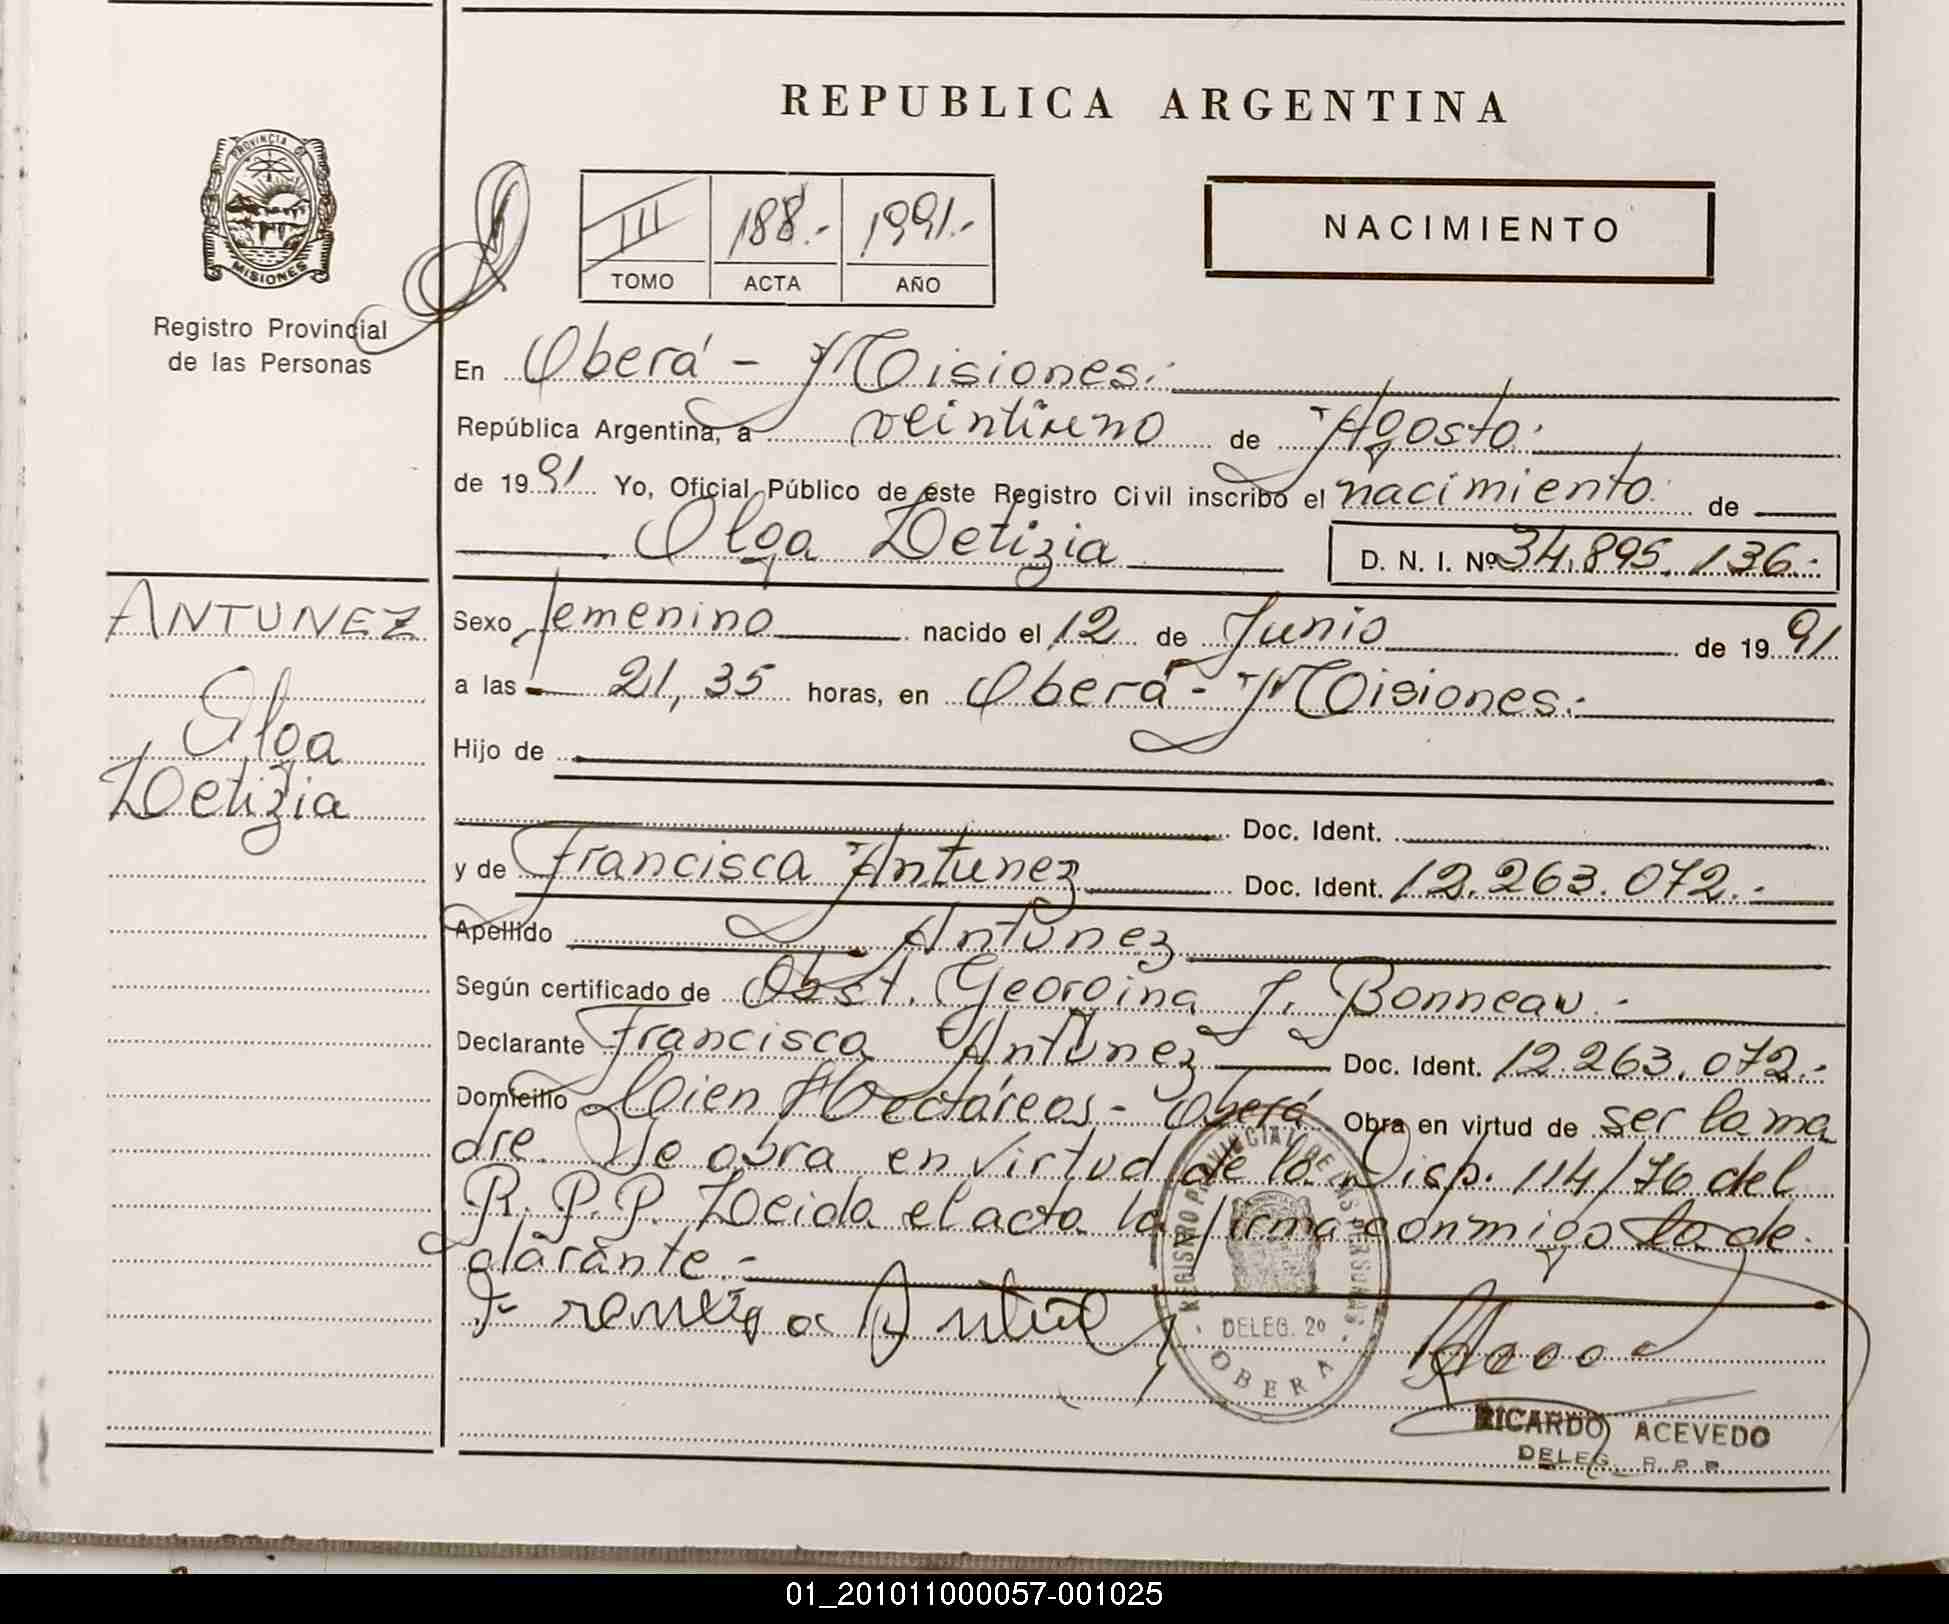 REPUBLICA ARGENTINA
PROVINCIA DE
MISIONES
Registro Provincial
de las Personas
III 188.- 1991.-
TOMO ACTA AÑO
NACIMIENTO
En Oberá - Misiones.-
República Argentina, a veintiuno de Agosto.
de 1991 Yo, Oficial Público de este Registro Civil inscribo el nacimiento de
Olga Letizia D. N. I. Nº 34.895.136.-
ANTUNEZ
Olga
Letizia
Sexo femenino nacido el 12 de Junio de 1991
a las 21,35 horas, en Oberá - Misiones.-
Hijo de
Doc. Ident.
y de Francisca Antunez Doc. Ident. 12.263.072.-
Apellido Antunez
Según certificado de Obst. Georgina J. Bonneau.-
Declarante Francisca Antunez Doc. Ident. 12.263.072.-
Domicilio Cien Hectáreas - Oberá Obra en virtud de ser la ma
dre. Se obra en virtud de la Disp. 114/76 del
R.P.P. Leida el acta la firma conmigo la de
clarante.-
REGISTRO PROVINCIAL DE LAS PERSONAS
DELEG. 20
OBERA
RICARDO ACEVEDO
DELEG. R.P.P.
01_201011000057-001025